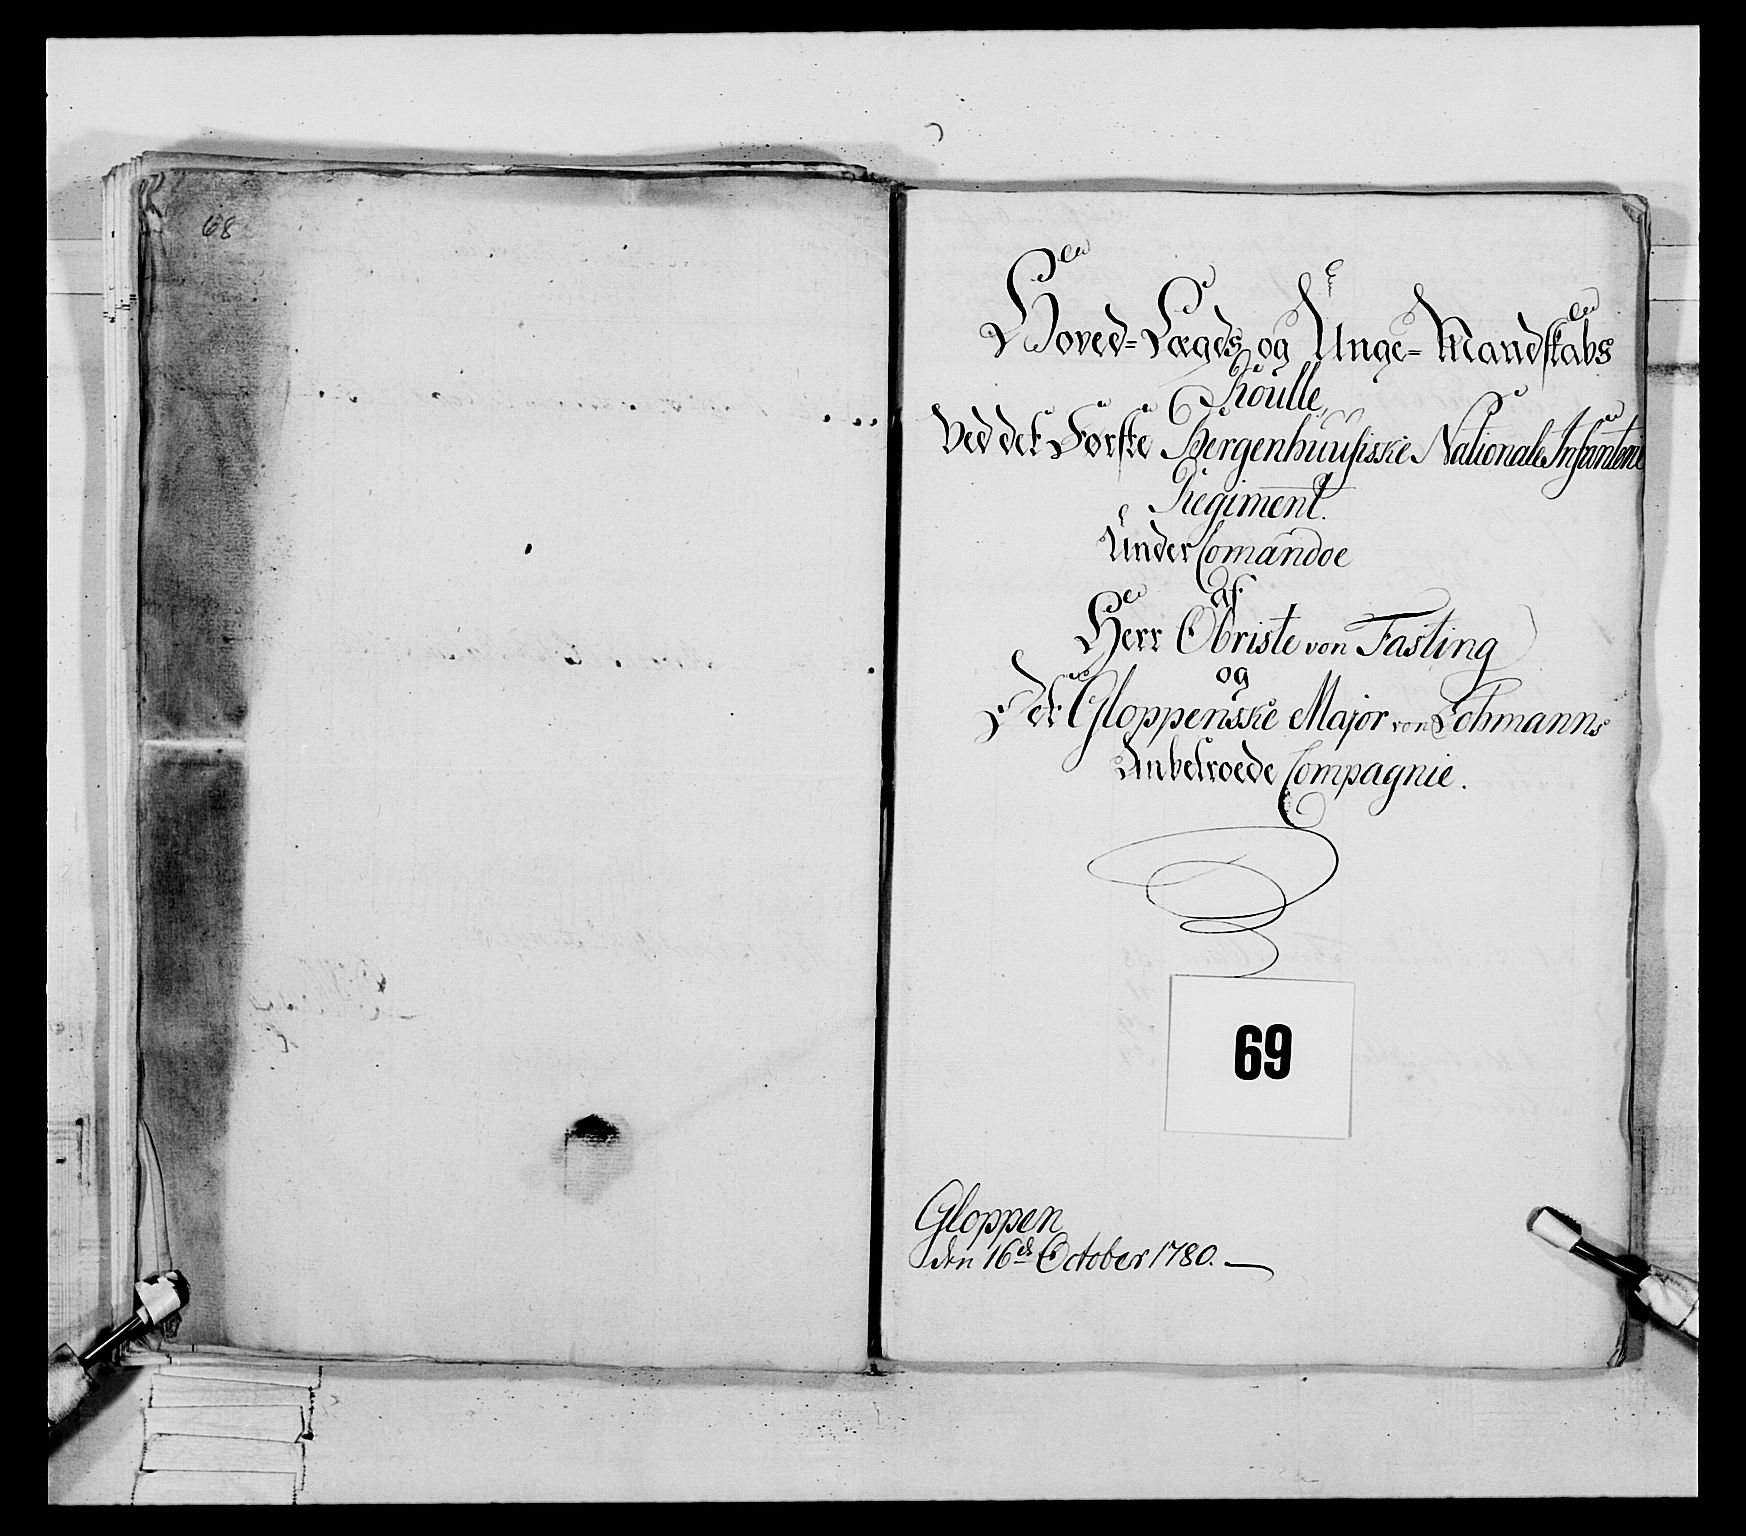 68
Hoved-Lægds og Unge-Mandskabs
Roulle,
Ved det Første Bergenhuusiske Nationale Infanterie
Regiment.
Under Comandoe
af
Herr Obriste von Fasting
og
Det Gloppenske Major von Lohmanns
Anbetroede Compagnie.
69
Gloppen
den 16de October 1780.